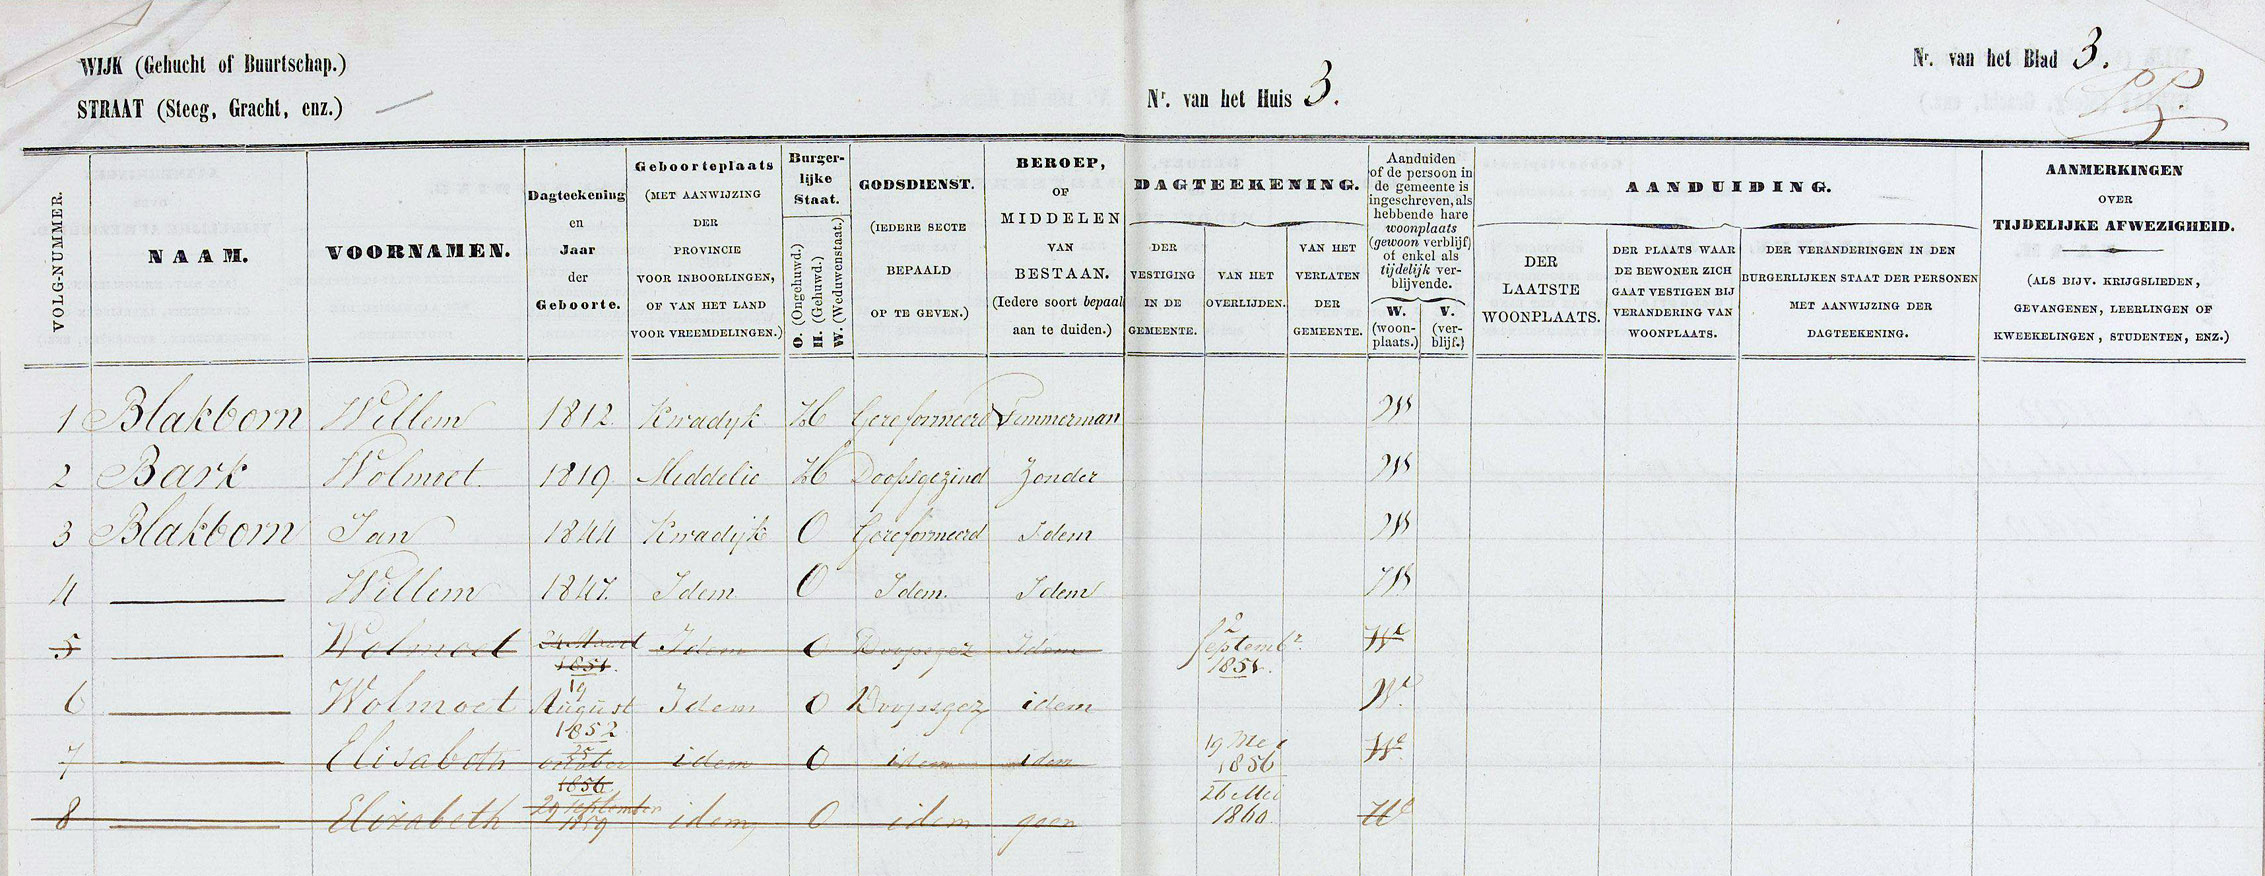 WIJK (Gehucht of Buurtschap.)
STRAAT (Steeg, Gracht, enz.) —
Nr. van het Huis 3.
Nr. van het Blad 3.
VOLG-NUMMER.
NAAM.
VOORNAMEN.
Dagteekening
en
Jaar
der
Geboorte.
Geboorteplaats
(MET AANWIJZING
DER
PROVINCIE
VOOR INBOORLINGEN,
OF VAN HET LAND
VOOR VREEMDELINGEN.)
Burger-
lijke
Staat.
O. (Ongehuwd.)
H. (Gehuwd.)
W. (Weduwenstaat.)
GODSDIENST.
(IEDERE SECTE
BEPAALD
OP TE GEVEN.)
BEROEP,
OF
MIDDELEN
VAN
BESTAAN.
(Iedere soort bepaal
aan te duiden.)
DAGTEEKENING.
DER
VESTIGING
IN DE
GEMEENTE.
VAN HET
OVERLIJDEN.
VAN HET
VERLATEN
DER
GEMEENTE.
Aanduiden
of de persoon in
de gemeente is
ingeschreven, als
hebbende hare
woonplaats
(gewoon verblijf)
of enkel als
tijdelijk ver-
blijvende.
W.
(woon-
plaats.)
V.
(ver-
blijf.)
AANDUIDING.
DER
LAATSTE
WOONPLAATS.
DER PLAATS WAAR
DE BEWONER ZICH
GAAT VESTIGEN BIJ
VERANDERING VAN
WOONPLAATS.
DER VERANDERINGEN IN DEN
BURGERLIJKEN STAAT DER PERSONEN
MET AANWIJZING DER
DAGTEEKENING.
AANMERKINGEN
OVER
TIJDELIJKE AFWEZIGHEID.
(ALS BIJV. KRIJGSLIEDEN,
GEVANGENEN, LEERLINGEN OF
KWEEKELINGEN, STUDENTEN, ENZ.)
1 Blakborn Willem 1812. Kwadyk H Gereformeerd Timmerman W
2 Bark Wolmoet 1819 Middelie H Doopsgezind Zonder W
3 Blakborn Jan 1844 Kwadijk O Gereformeerd Idem W
4 — Willem 1847. Idem O Idem. Idem W
5 — Wolmoet Maart 1851. Idem O Doopsgez Idem 2 Septembr. 1851. W
6 — Wolmoet 19 August 1852 Idem O Doopsgez idem W
7 — Elisabeth 25 october 1856 idem O idem idem 19 Mei 1856 W
8 — Elizabeth 29 september 1859 idem, O idem geen 26 Mei 1860. W